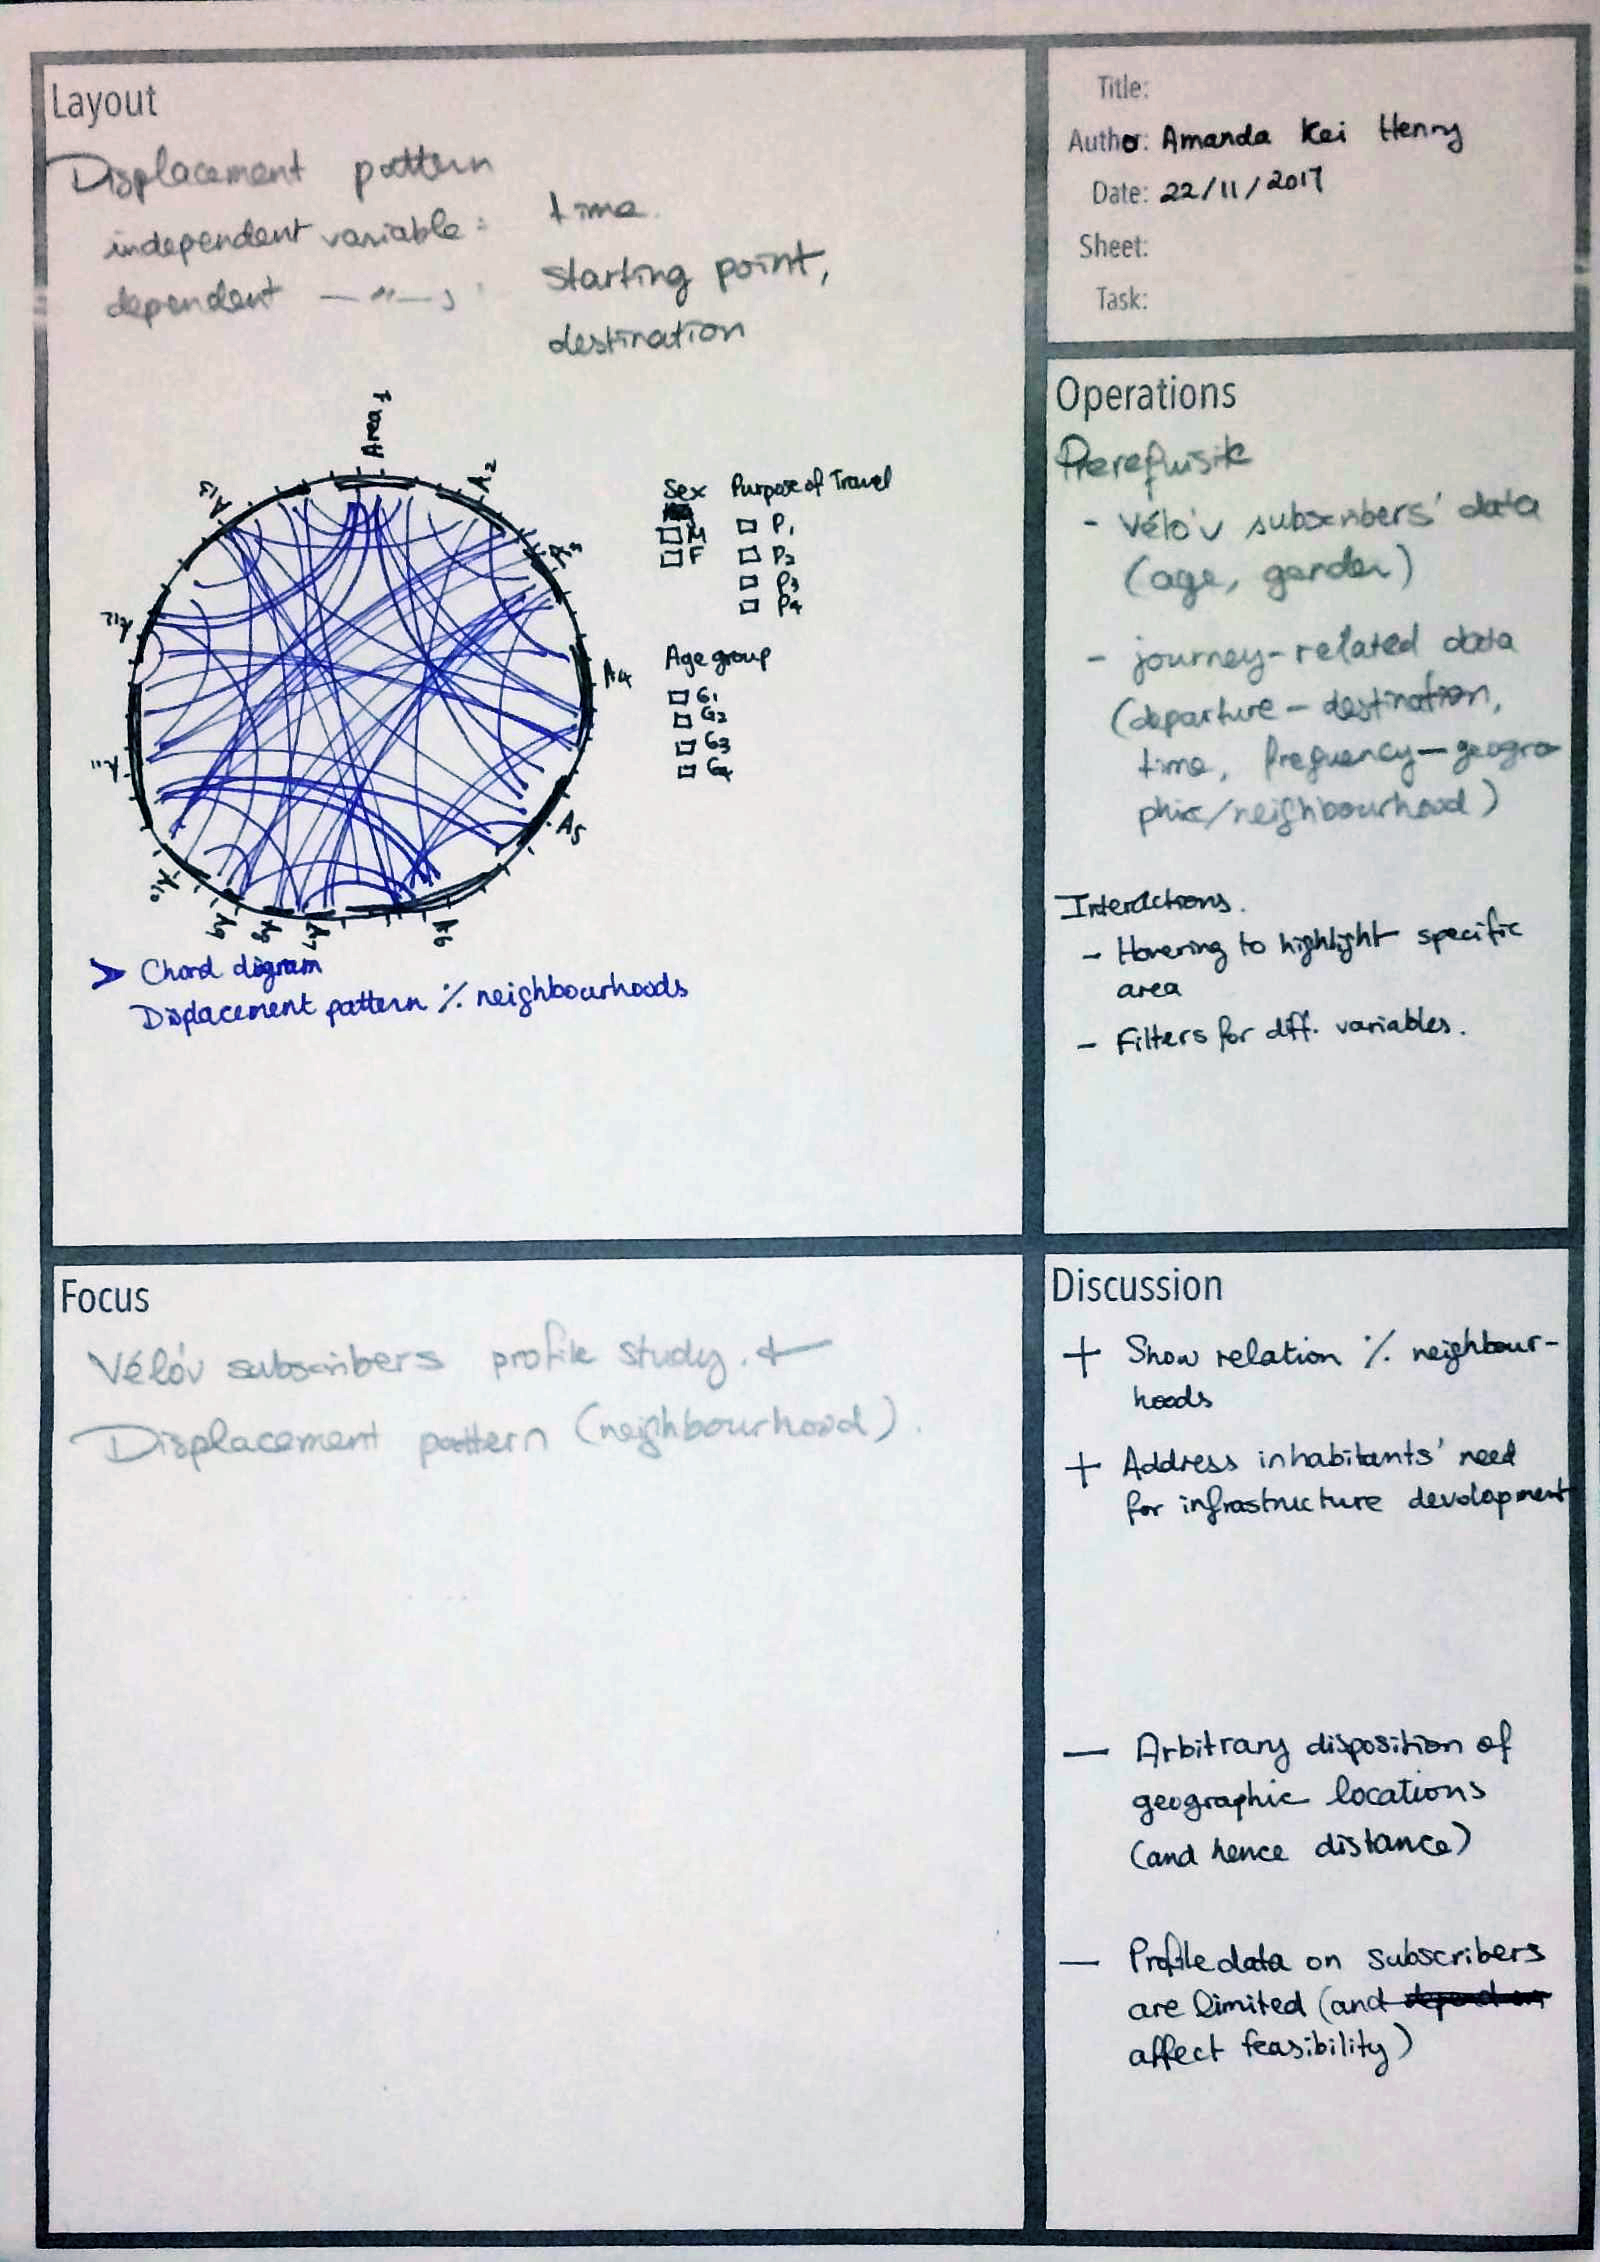 Layout
Displacement pattern
independent variable: time.
dependent —"—s: starting point,
destination
Area 1
A2
A3
A4
A5
A6
A7
A8
A9
A10
A11
A12
A13
Sex
M
F
Purpose of Travel
P1
P2
P3
P4
Age group
G1
G2
G3
G4
> Chord digram
Displacement pattern ./. neighbourhoods
Title:
Author: Amanda Kei Henry
Date: 22/11/2017
Sheet:
Task:
Operations
Prerequisite
- Vélo'v subscribers' data
(age, gender)
- journey-related data
(departure - destination,
time, frequency - geogra
phic/neighbourhood)
Interactions.
- Hovering to highlight specific
area
- Filters for diff. variables.
Focus
Vélo'v subscribers profile study. +
Displacement pattern (neighbourhood).
Discussion
+ Show relation ./. neighbour-
hoods
+ Address inhabitants' need
for infrastructure development
- Arbitrary disposition of
geographic locations
(and hence distance)
- Profile data on subscribers
are limited (and
affect feasibility)